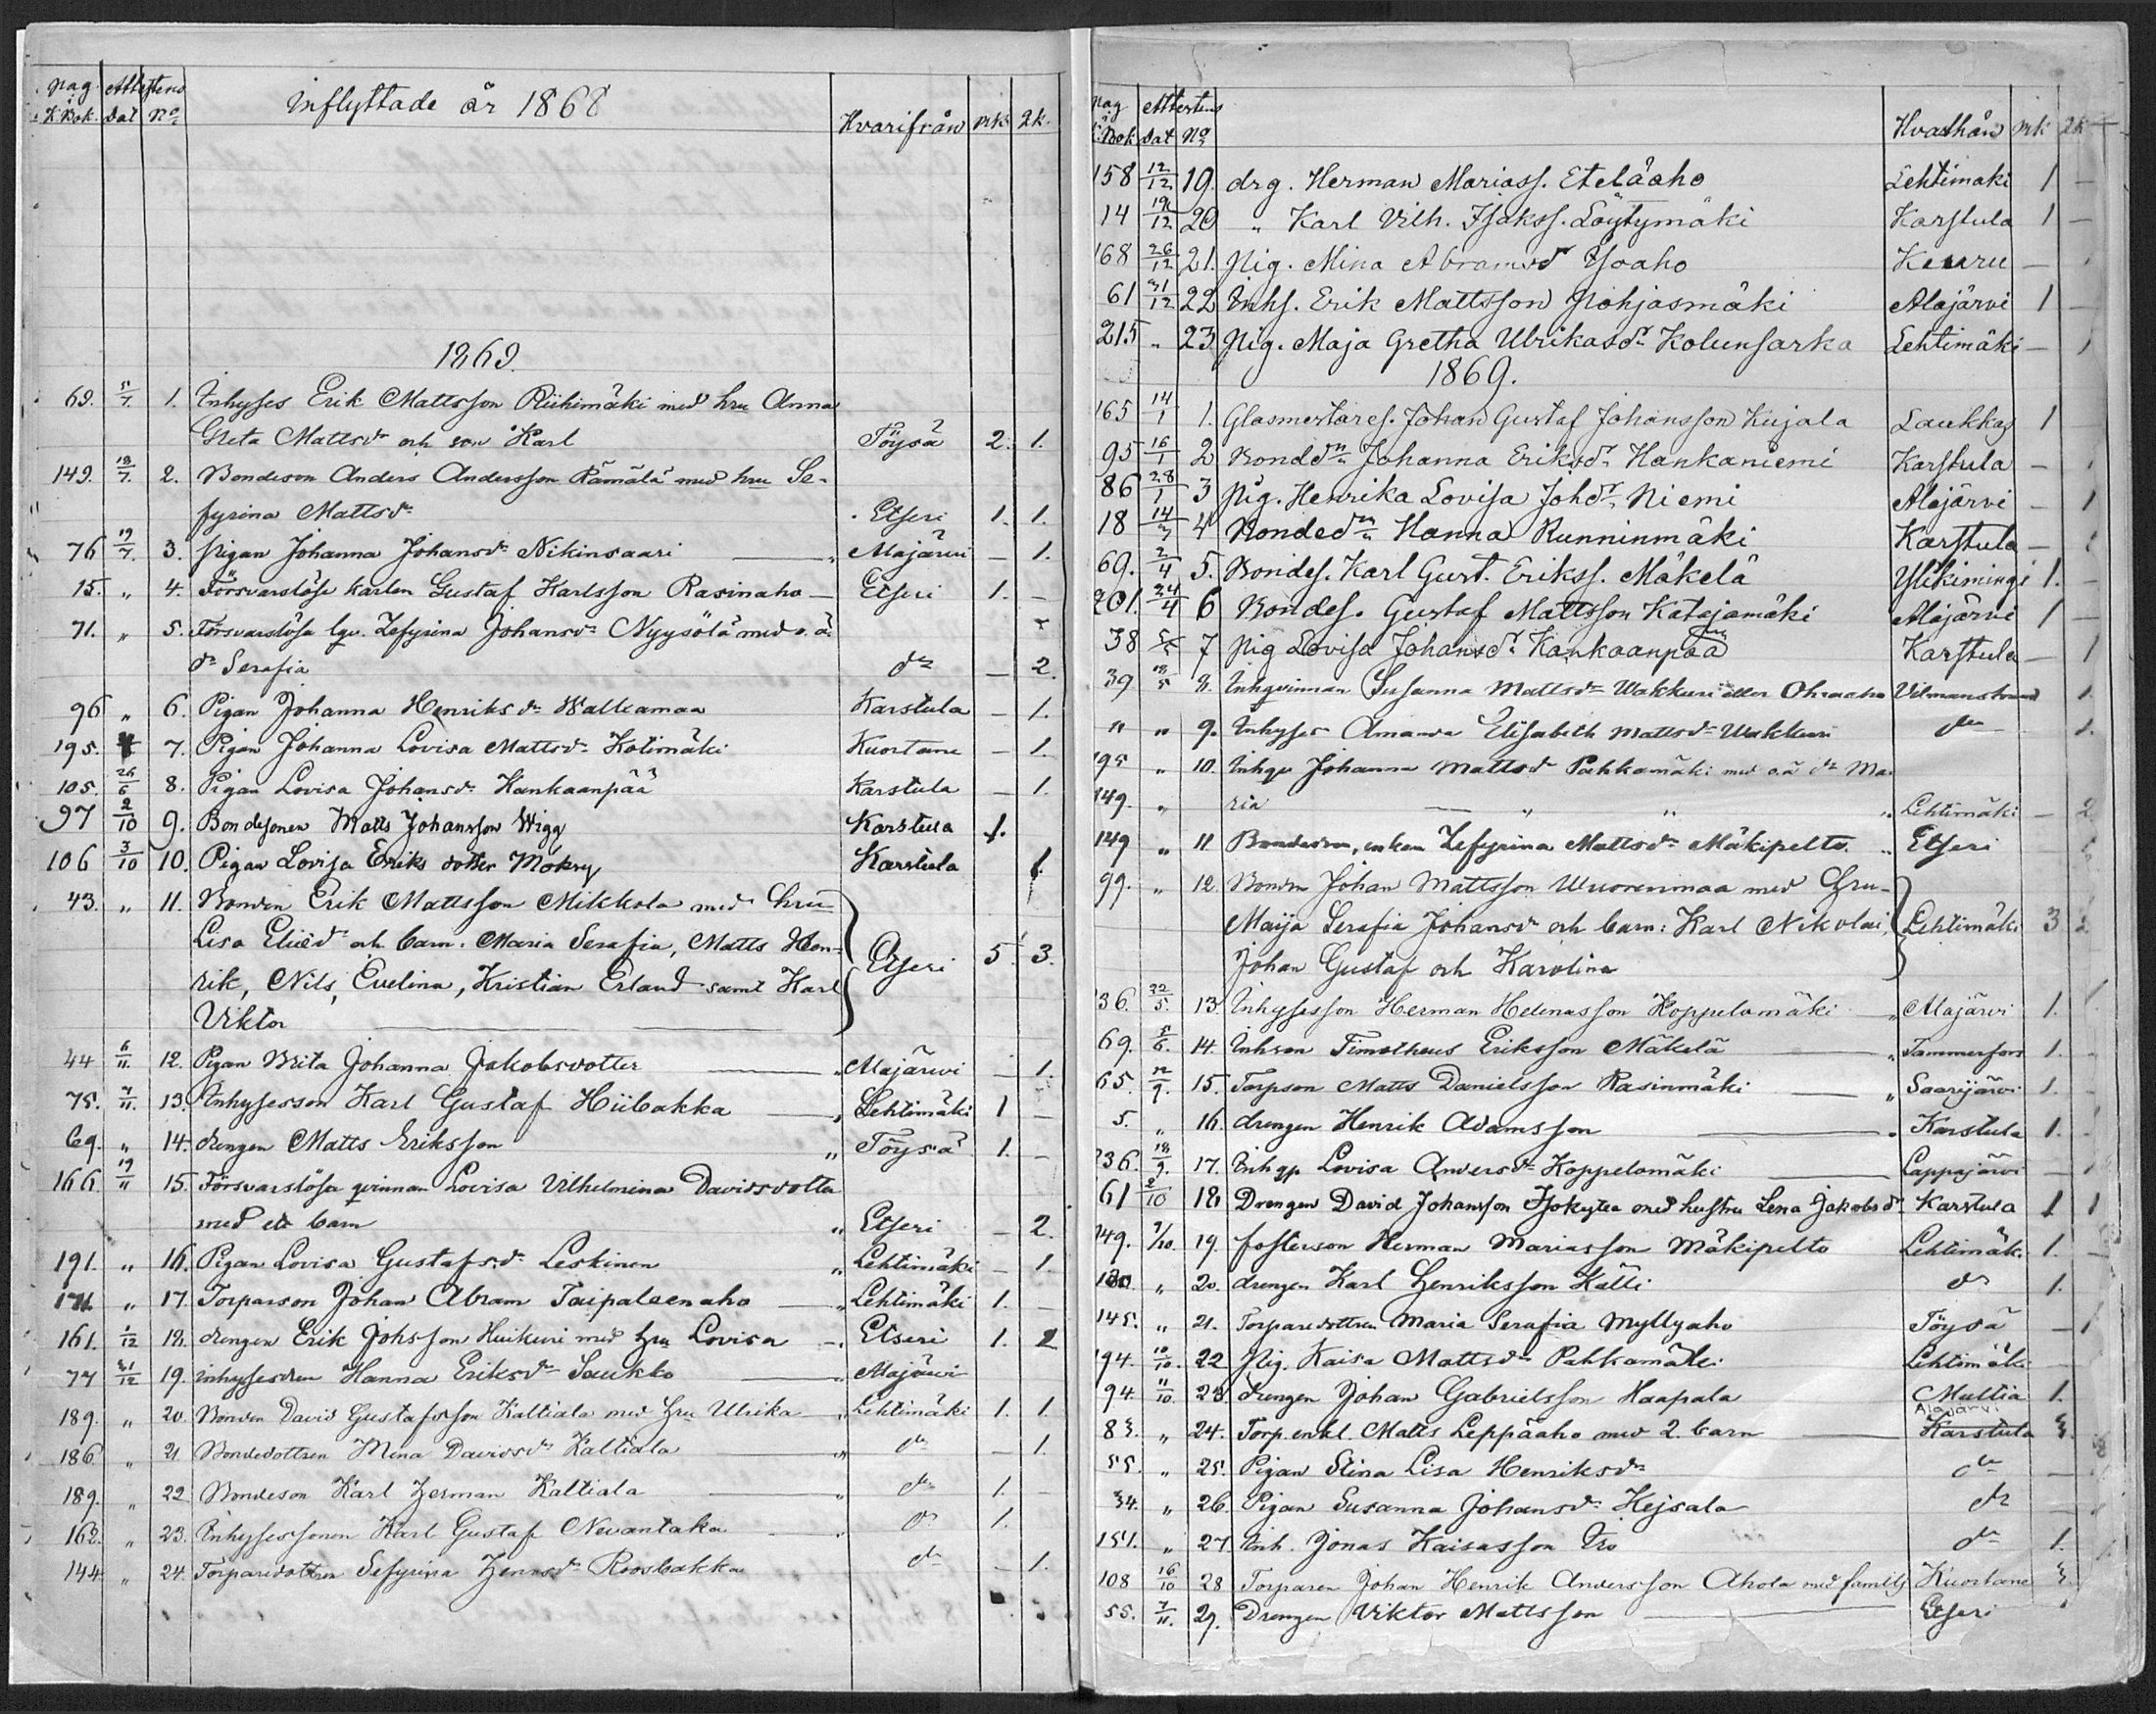 pag. i K.Bok. Attestens Dat No Inflyttade år 1868 Hvarifrån mk. qk.
1869.
69. 5/7. 1. Inhyses Erik Mattsson Riihimäki med hru Anna
Greta Mattsdr och son Karl Töysä 2. 1.
149. 13/7. 2. Bondeson Anders Andersson Rämälä med hru Se-
fyrina Mattsdr Etseri 1. 1.
76 19/7. 3. pigan Johanna Johansdr Nikinsaari " Alajärvi – 1.
15. " 4. Försvarslöse karlen Gustaf Karlsson Rasinaho – Etseri 1. –
71. " 5. Försvarslösa Zefyrina Johansdr Nyysölä med o.ä.
dr Serafia do – 2.
96 " 6. Pigan Johanna Henriksdr Walkamaa Karstula – 1.
195. 7. Pigan Johanna Lovisa Mattsdr Kotimäki Kuortane – 1.
105. 26/6 8. Pigan Lovisa Johansdr Kankaanpää Karstula – 1.
97 2/10 9. Bondsonen Matts Johansson Wigg Karstula 1.
106 3/10 10. Pigan Lovisa Eriks dotter Moksy Karstula 1.
43. " 11. Bonden Erik Mattsson Mikkola med hru
Lisa Eliedr och barn: Maria Serafia, Matts Hen-
rik, Nils, Evelina, Kristian Erland samt Karl Etseri 5. 3.
Viktor
44 6/11. 12. Pigan Brita Johanna Jakobsdotter " Alajärvi – 1.
75. 7/11. 13. Inhysesson Karl Gustaf Hiibakka " Lehtimäki 1 –
69. " 14. drengen Matts Eriksson " Töysä 1. –
166. 19/11 15. Försvarslösa qvinnan Lovisa Vilhelmina Davidsdotter
med ett barn " Etseri – 2.
191. " 16. Pigan Lovisa Gustafsdr Leskinen " Lehtimäki – 1.
171. " 17. Torpareson Johan Abram Taipaleenaho " Lehtimäki 1. –
161. 1/12 18. drengen Erik Johsson Huikuri med hru Lovisa – Etseri 1. 2
77 31/12 19. inhysesdren Hanna Eriksdr Saukko " Alajärvi
189. " 20. Bonden David Gustafsson Kaltiala med hru Ulrika " Lehtimäki 1. 1.
186 " 21 Bondedottren Mina Davidsdr Kaltiala " do – 1.
189. " 22 Bondeson Karl Herman Kaltiala " do 1. –
162. " 23. Inhysessonen Karl Gustaf Nevantaka " do 1.
144. " 24. Torparedottren Sefyrina Hermsdr Roosbakka do – 1.
pag i K:Bok Attestens Dat No Hvarifrån mk qk
158 12/12 19. drg. Herman Mariass. Eteläaho Lehtimäki 1 –
14 19/12 20 " Karl Vilh. Isakss. Löytymäki Karstula 1 –
168 26/12 21. pig. Mina Abramsdr Ysoaho Keuru –
61 31/12 22 Inhs. Erik Mattsson Pohjasmäki Alajärvi 1 –
215 " 23 pig. Maja Gretha Ulrikasdr Kolunsarka Lehtimäki – 1
1869.
165 14/1 1. Glasmästares. Johan Gustaf Johansson Kujala Laukkas 1
95 16/1 2 Bonddn Johanna Eriksdr Hankaniemi Karstula – 1
86 28/1 3 pig. Henrika Lovisa Johdr Niemi Alajärvi – 1
18 14/3 4 Bondedn Hanna Runninmäki Karstula –
69. 2/4 5. Bondes. Karl Gust. Erikss. Mäkelä Ylikimingi 1. –
201. 24/4 6 Bondes. Gustaf Mattsson Katajamäki Alajärvi 1 –
38 5/5 7 pig Lovisa Johansdr Kankaanpää Karstula – 1
39 8. Inhqvinnan Susanna Mattsdr Wakkuri eller Ohraaho Vilmanstrand 1.
" " 9. Inhyses Amanda Elisabeth Mattsdr Wakkuri do 1.
195 " 10. Inhqv Johanna Mattsdr Pahkamäki med o.ä dr Ma-
149. " ria " Lehtimäki – 2
149 " 11 Bondeson, enkan Zefyrina Mattsdr Mäkipelto. " Etseri
99. " 12. Bonden Johan Mattsson Wuorenmaa med Hru
Maija Serafia Johansdr och barn: Karl Nikolai, Lehtimäki 3 2
Johan Gustaf och Karolina
236. 22/5. 13. Inhysesson Herman Helenasson Koppelomäki " Alajärvi 1.
69. 5/6. 14. Inhson Timotheus Eriksson Mäkelä " Tammerfors 1.
65. 12/9. 15. Torpson Matts Danielsson Rasinmäki " Saarijärvi 1.
5. " 16. drengen Henrik Adamsson " Karstula 1.
236. 18/9. 17. Inhqv Lovisa Andersdr Koppelomäki Lappajärvi – 1
61 2/10 18 Drengen David Johansson Isokytea med hustru Lena Jakobsdr Karstula 1 1
149. 7/10. 19. fosterson Herman Mariasson Mäkipelto Lehtimäki 1. –
" 20. drengen Karl Henriksson Källi do 1.
145. " 21. Torparedottren Maria Serafia Myllyaho Töysä – 1
194. 10/10. 22 Pig. Kaisa Mattsdr Pahkamäki Lehtimäki
94. 11/10. 23. drengen Johan Gabrielsson Haapala Multia 1.
Alajärvi
83. " 24. Torp.enkl. Matts Leppäaho med 2. barn Karstula 3.
55. " 25. Pigan Stina Lisa Henriksdr do
34. " 26. Pigan Susanna Johansdr Kejsala do
151. " 27. Inh. Jonas Kaisasson Iso do 1.
108 16/10 28 Torparen Johan Henrik Andersson Ahola med familj Kuortane 3.
55. 7/11. 29. Drengen Viktor Mattsson Etseri